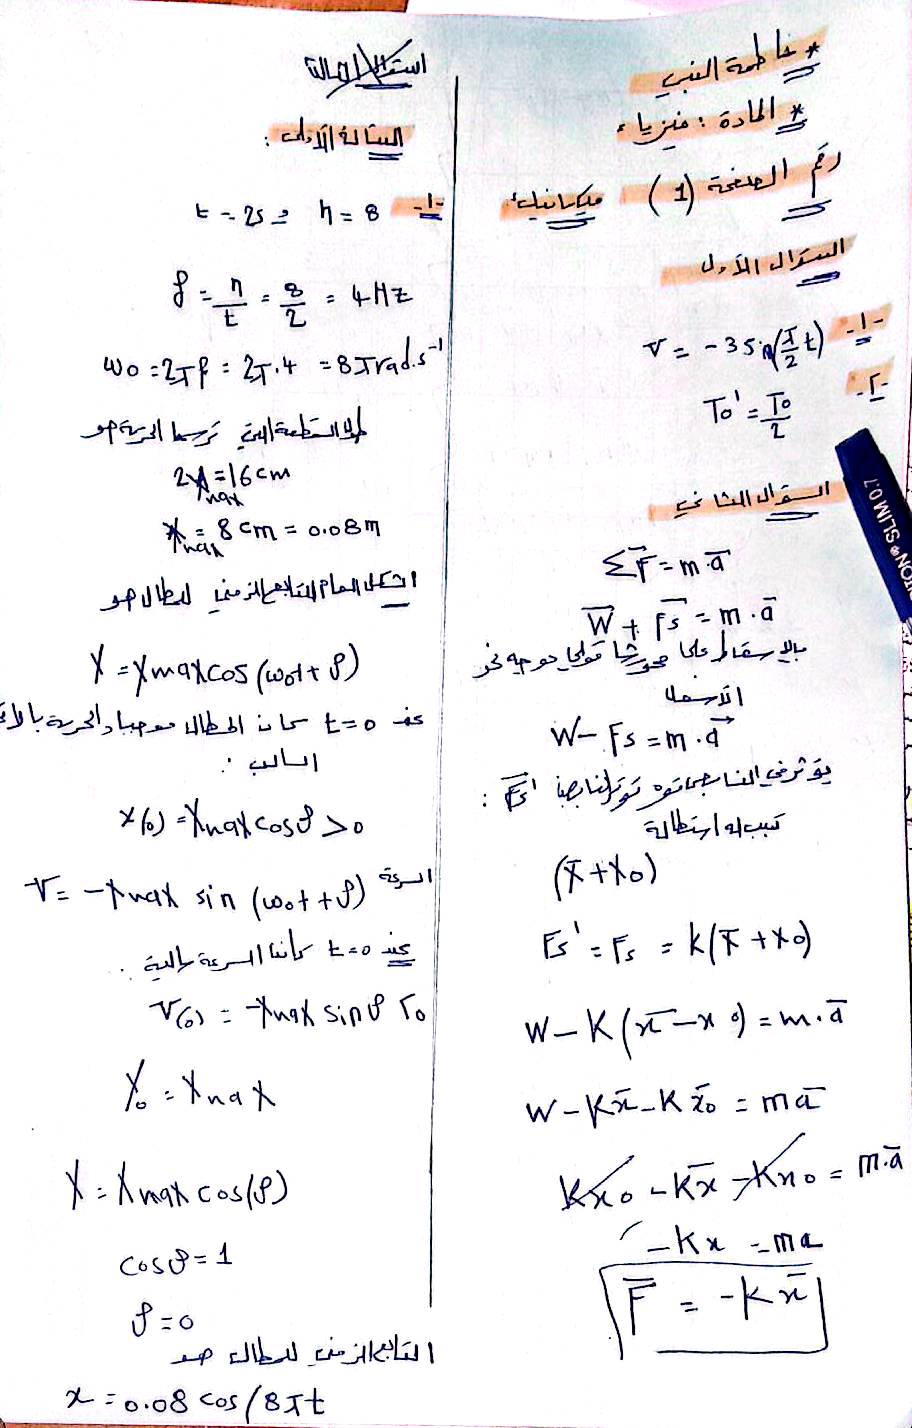 * فاطمة النبي
* المادة : فيزياء
رقم الصفحة (1) ميكانيك:
السؤال الأول
-1- v = -3 sin(π/2 t)
-2- To' = To/2
السؤال الثاني
ΣF̄ = m.ā
W̄ + F̄s = m.ā
بالإسقاط على محور شاقولي موجه نحو
الأسفل
W - Fs = m.a⃗
يؤثر في النابض قوة توتر النابض F̄s' :
تسبب له استطالة
(x̄ + x0)
Fs' = Fs = k(x̄ + x0)
W - K(x̄ - x0) = m.ā
W - Kx̄ - K x̄0 = mā
Kx0 - Kx̄ - Kx0 = m.ā
-Kx = ma
F̄ = -Kx̄
المسألة الأولى :
-1- n = 8 و t = 2s
f = n/t = 8/2 = 4Hz
ω0 = 2πf = 2π.4 = 8π rad.s⁻¹
طول القطعة التي ترسمها الحزبة هو
2Xmax = 16 cm
Xmax = 8 cm = 0.08m
الشكل العام للتابع الزمني للمطال هو
X = Xmax cos (ω0t + φ)
عند t=0 كان المطال موجبا والحركة بالاتجاه
السالب :
x(0) = Xmax cosφ > 0
السرعة v = -Xmax sin (ω0t + φ)
عند t=0 كانت السرعة سالبة :
v(0) = -Xmax sinφ < 0
X0 = Xmax
X = Xmax cos(φ)
cosφ = 1
φ = 0
التابع الزمني للمطال هو
x = 0.08 cos (8πt
SLIM 0.7